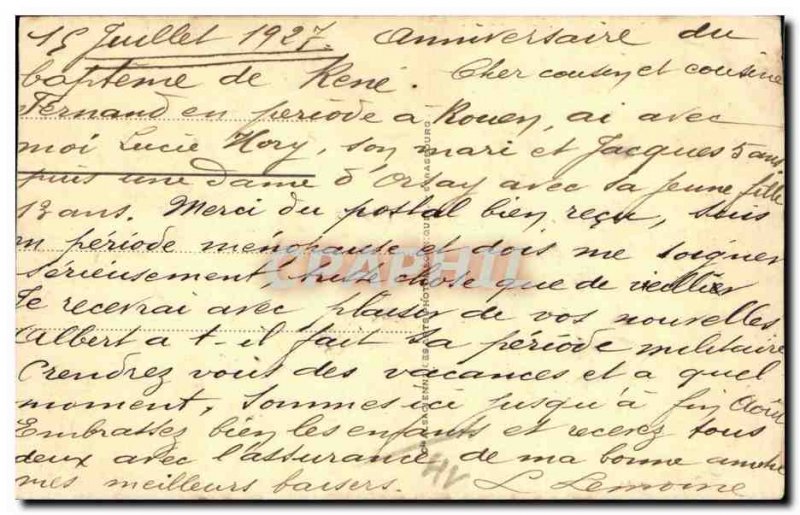 15 Juillet 1927. Anniversaire du
baptême de René. Cher cousin et cousine
Fernand en période à Rouen, ai avec
moi Lucie Hory, son mari et Jacques 5 ans
puis une dame d'Orsay avec sa jeune fille
13 ans. Merci du postal bien reçu, suis
en période ménopause et dois me soigner
sérieusement triste chose que de vieillir
Je recevrai avec plaisir de vos nouvelles
Albert a t-il fait sa période militaire
Prendrez vous des vacances et a quel
moment, sommes ici jusqu'à fin Août
Embrassez bien les enfants et recevez tous
deux avec l'assurance de ma bonne amitié
mes meilleurs baisers. L Lemoine
CRAPHIL
STRASBOURG